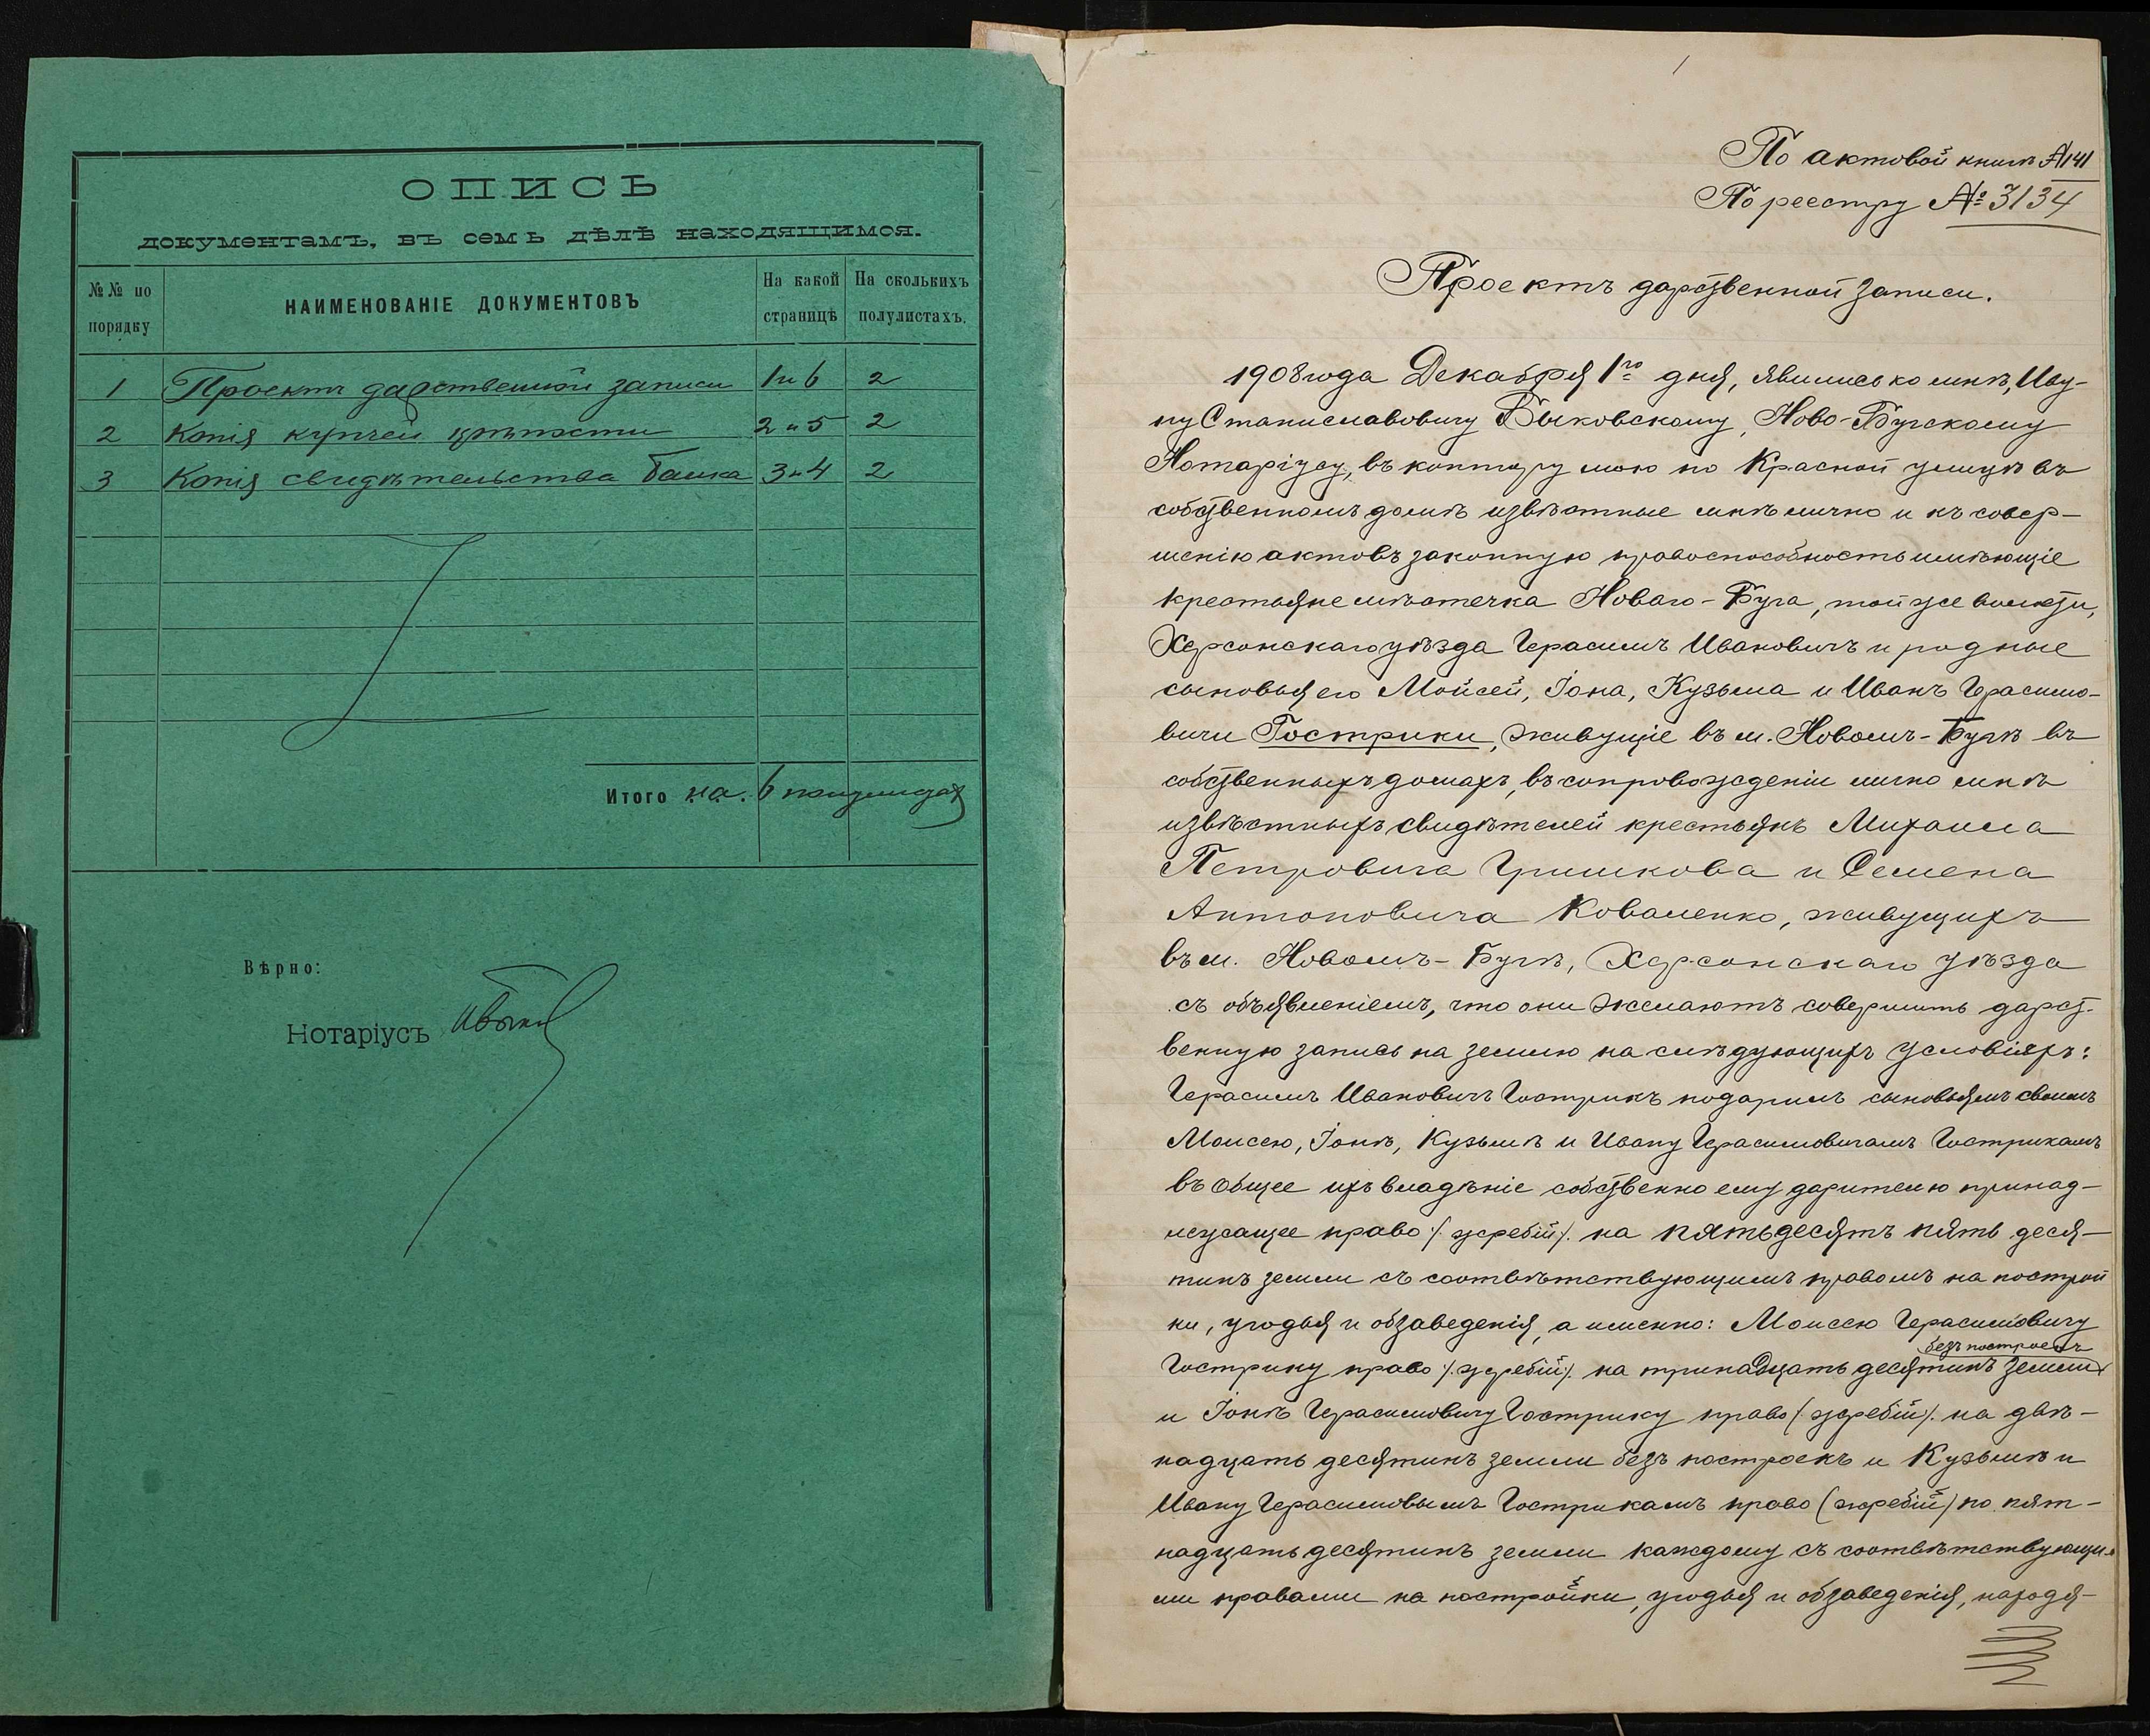 ОПИСЬ
документамъ, въ семъ дѣлѣ находящимся.
№№ по порядку
НАИМЕНОВАНІЕ ДОКУМЕНТОВЪ
На какой страницѣ
На сколькихъ полулистахъ.
1 Проектъ дарственной записи 1 и 6 2
2 Копія купчей крѣпости 2 и 5 2
3 Копія свидѣтельства банка 3 и 4 2
Итого на 6 полулистах
Вѣрно:
Нотаріусъ
1
По актовой книгѣ № 141
По реестру № 3134
Проектъ дарственной записи.
1908 года Декабря 1го дня, явились ко мнѣ, Ива-
ну Станиславовичу Быковскому, Ново-Бугскому
Нотаріусу, въ контору мою по Красной улицѣ въ
собственномъ домѣ извѣстные мнѣ лично и къ совер-
шенію актовъ законную правоспособность имѣющіе
крестьяне мѣстечка Новаго-Буга, той же волости,
Херсонскаго уѣзда Герасимъ Ивановичъ и родные
сыновья его Мойсей, Іона, Кузьма и Иванъ Герасимо-
вичи Гострики, живущіе въ м. Новомъ-Бугѣ въ
собственныхъ домахъ, въ сопровожденіи лично мнѣ
извѣстныхъ свидѣтелей крестьянъ Михаила
Петровича Гришкова и Семена
Антоновича Коваленко, живущихъ
въ м. Новомъ-Бугѣ, Херсонскаго уѣзда
съ объявленіемъ, что они желаютъ совершить дарст-
венную запись на землю на слѣдующихъ условіяхъ:
Герасимъ Ивановичъ Гострикъ подарилъ сыновьямъ своимъ
Моисею, Іонѣ, Кузьмѣ и Ивану Герасимовичамъ Гострикамъ
въ общее ихъ владѣніе собственно ему дарителю принад-
лежащее право /:жребій/: на пятьдесятъ пять деся-
тинъ земли съ соотвѣтствующимъ правомъ на построй
ки, угодья и обзаведенія, а именно: Моисею Герасимовичу
безъ построекъ
Гострику право /:жребій:/ на тринадцать десятинъ земли
и Іонѣ Герасимовичу Гострику право /:жребій/: на двѣ-
надцать десятинъ земли безъ построекъ и Кузьмѣ и
Ивану Герасимовымъ Гострикамъ право (жребій) по пят-
надцать десятинъ земли каждому съ соотвѣтствующи-
ми правами на постройки, угодья и обзаведенія, находя-